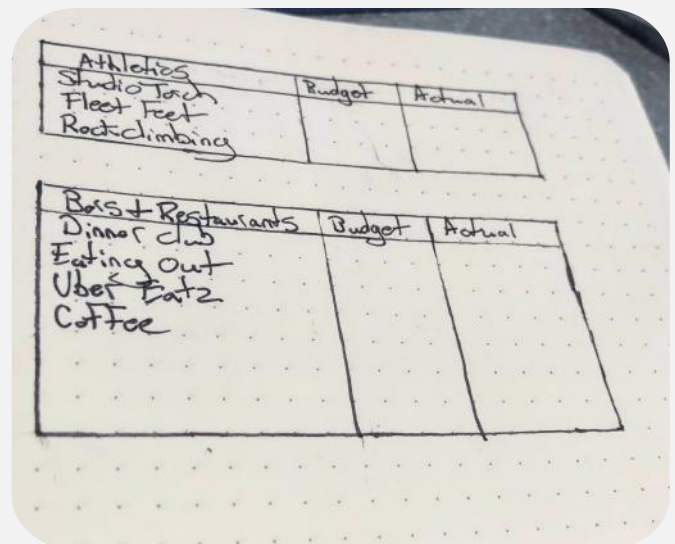 Athletics Budget Actual
Studio Torch
Fleet Feet
Rockclimbing
Bars + Restaurants Budget Actual
Dinner club
Eating Out
Uber Eatz
Coffee